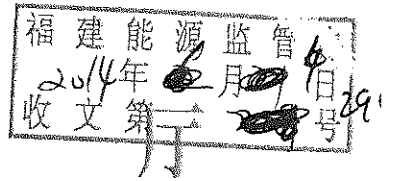 福建能源监管
2014年 月 日
收文第 号 291
厅